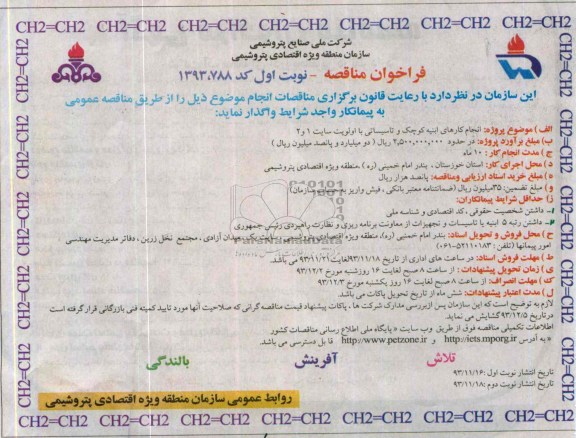 CH2=CH2 CH2=CH2 CH2=CH2 CH2=CH2 CH2=CH2 CH2=CH2 CH2=CH2
شرکت ملی صنایع پتروشیمی
سازمان منطقه ویژه اقتصادی پتروشیمی
فراخوان مناقصه - نوبت اول کد ۱۳۹۳،۷۸۸
این سازمان در نظر دارد با رعایت قانون برگزاری مناقصات انجام موضوع ذیل را از طریق مناقصه عمومی
به پیمانکار واجد شرایط واگذار نماید:
الف) موضوع پروژه: انجام کارهای ابنیه کوچک و تاسیساتی با اولویت سایت ۱ و ۲
ب) مبلغ برآورد پروژه: در حدود ۲,۵۰۰,۰۰۰,۰۰۰ ریال ( دو میلیارد و پانصد میلیون ریال )
ج) مدت انجام کار: ۱۰ ماه
د) محل اجرای کار: استان خوزستان ، بندر امام خمینی (ره) ، منطقه ویژه اقتصادی پتروشیمی
ه) مبلغ خرید اسناد ارزیابی ومناقصه: پانصد هزار ریال
و) مبلغ تضمین: ۳۵میلیون ریال (ضمانتنامه معتبر بانکی ، فیش واریز به حساب سازمان)
ز) حداقل شرایط پیمانکاران:
۱- داشتن شخصیت حقوقی ، کد اقتصادی و شناسه ملی
۲- داشتن رتبه ۵ ابنیه یا تاسیسات و تجهیزات از معاونت برنامه ریزی و نظارت راهبردی رئیس جمهوری
ح) محل فروش و تحویل اسناد: بندر امام خمینی (ره)، منطقه ویژه اقتصادی پتروشیمی، سایت یک، میدان آزادی ، مجتمع نخل زرین ، دفاتر مدیریت مهندسی
امور پیمانها (تلفن: ۵۲۱۱۰۱۸۳-۰۶۱)
ط) مهلت فروش اسناد: در ساعت های اداری از تاریخ ۹۳/۱۱/۱۸ لغایت ۹۳/۱۱/۲۱ می باشد.
ی) زمان تحویل پیشنهادات : از ساعت ۸ صبح لغایت ۱۶ روز شنبه مورخ ۹۳/۱۲/۲
ک) مهلت انصراف: از ساعت ۸ صبح لغایت ۱۶ روز یکشنبه مورخ ۹۳/۱۲/۳
ل) مدت اعتبار پیشنهادات: شش ماه از تاریخ تحویل پاکات می باشد.
لازم به توضیح است که این سازمان پس از بررسی مدارک شرکت ها ، پاکات پیشنهاد قیمت مناقصه گرانی که صلاحیت آنها مورد تایید کمیته فنی بازرگانی قرار گرفته است
در تاریخ ۹۳/۱۲/۵ گشایش می نماید.
اطلاعات تکمیلی مناقصه فوق از طریق وب سایت « پایگاه ملی اطلاع رسانی مناقصات کشور
» به آدرس http://iets.mporg.ir و http://www.petzone.ir قابل دسترسی می باشد.
تلاش آفرینش بالندگی
تاریخ انتشار نوبت اول :۹۳/۱۱/۱۶
تاریخ انتشار نوبت دوم :۹۳/۱۱/۱۸
روابط عمومی سازمان منطقه ویژه اقتصادی پتروشیمی
CH2=CH2 CH2=CH2 CH2=CH2 CH2=CH2 CH2=CH2 CH2=CH2 CH2=CH2